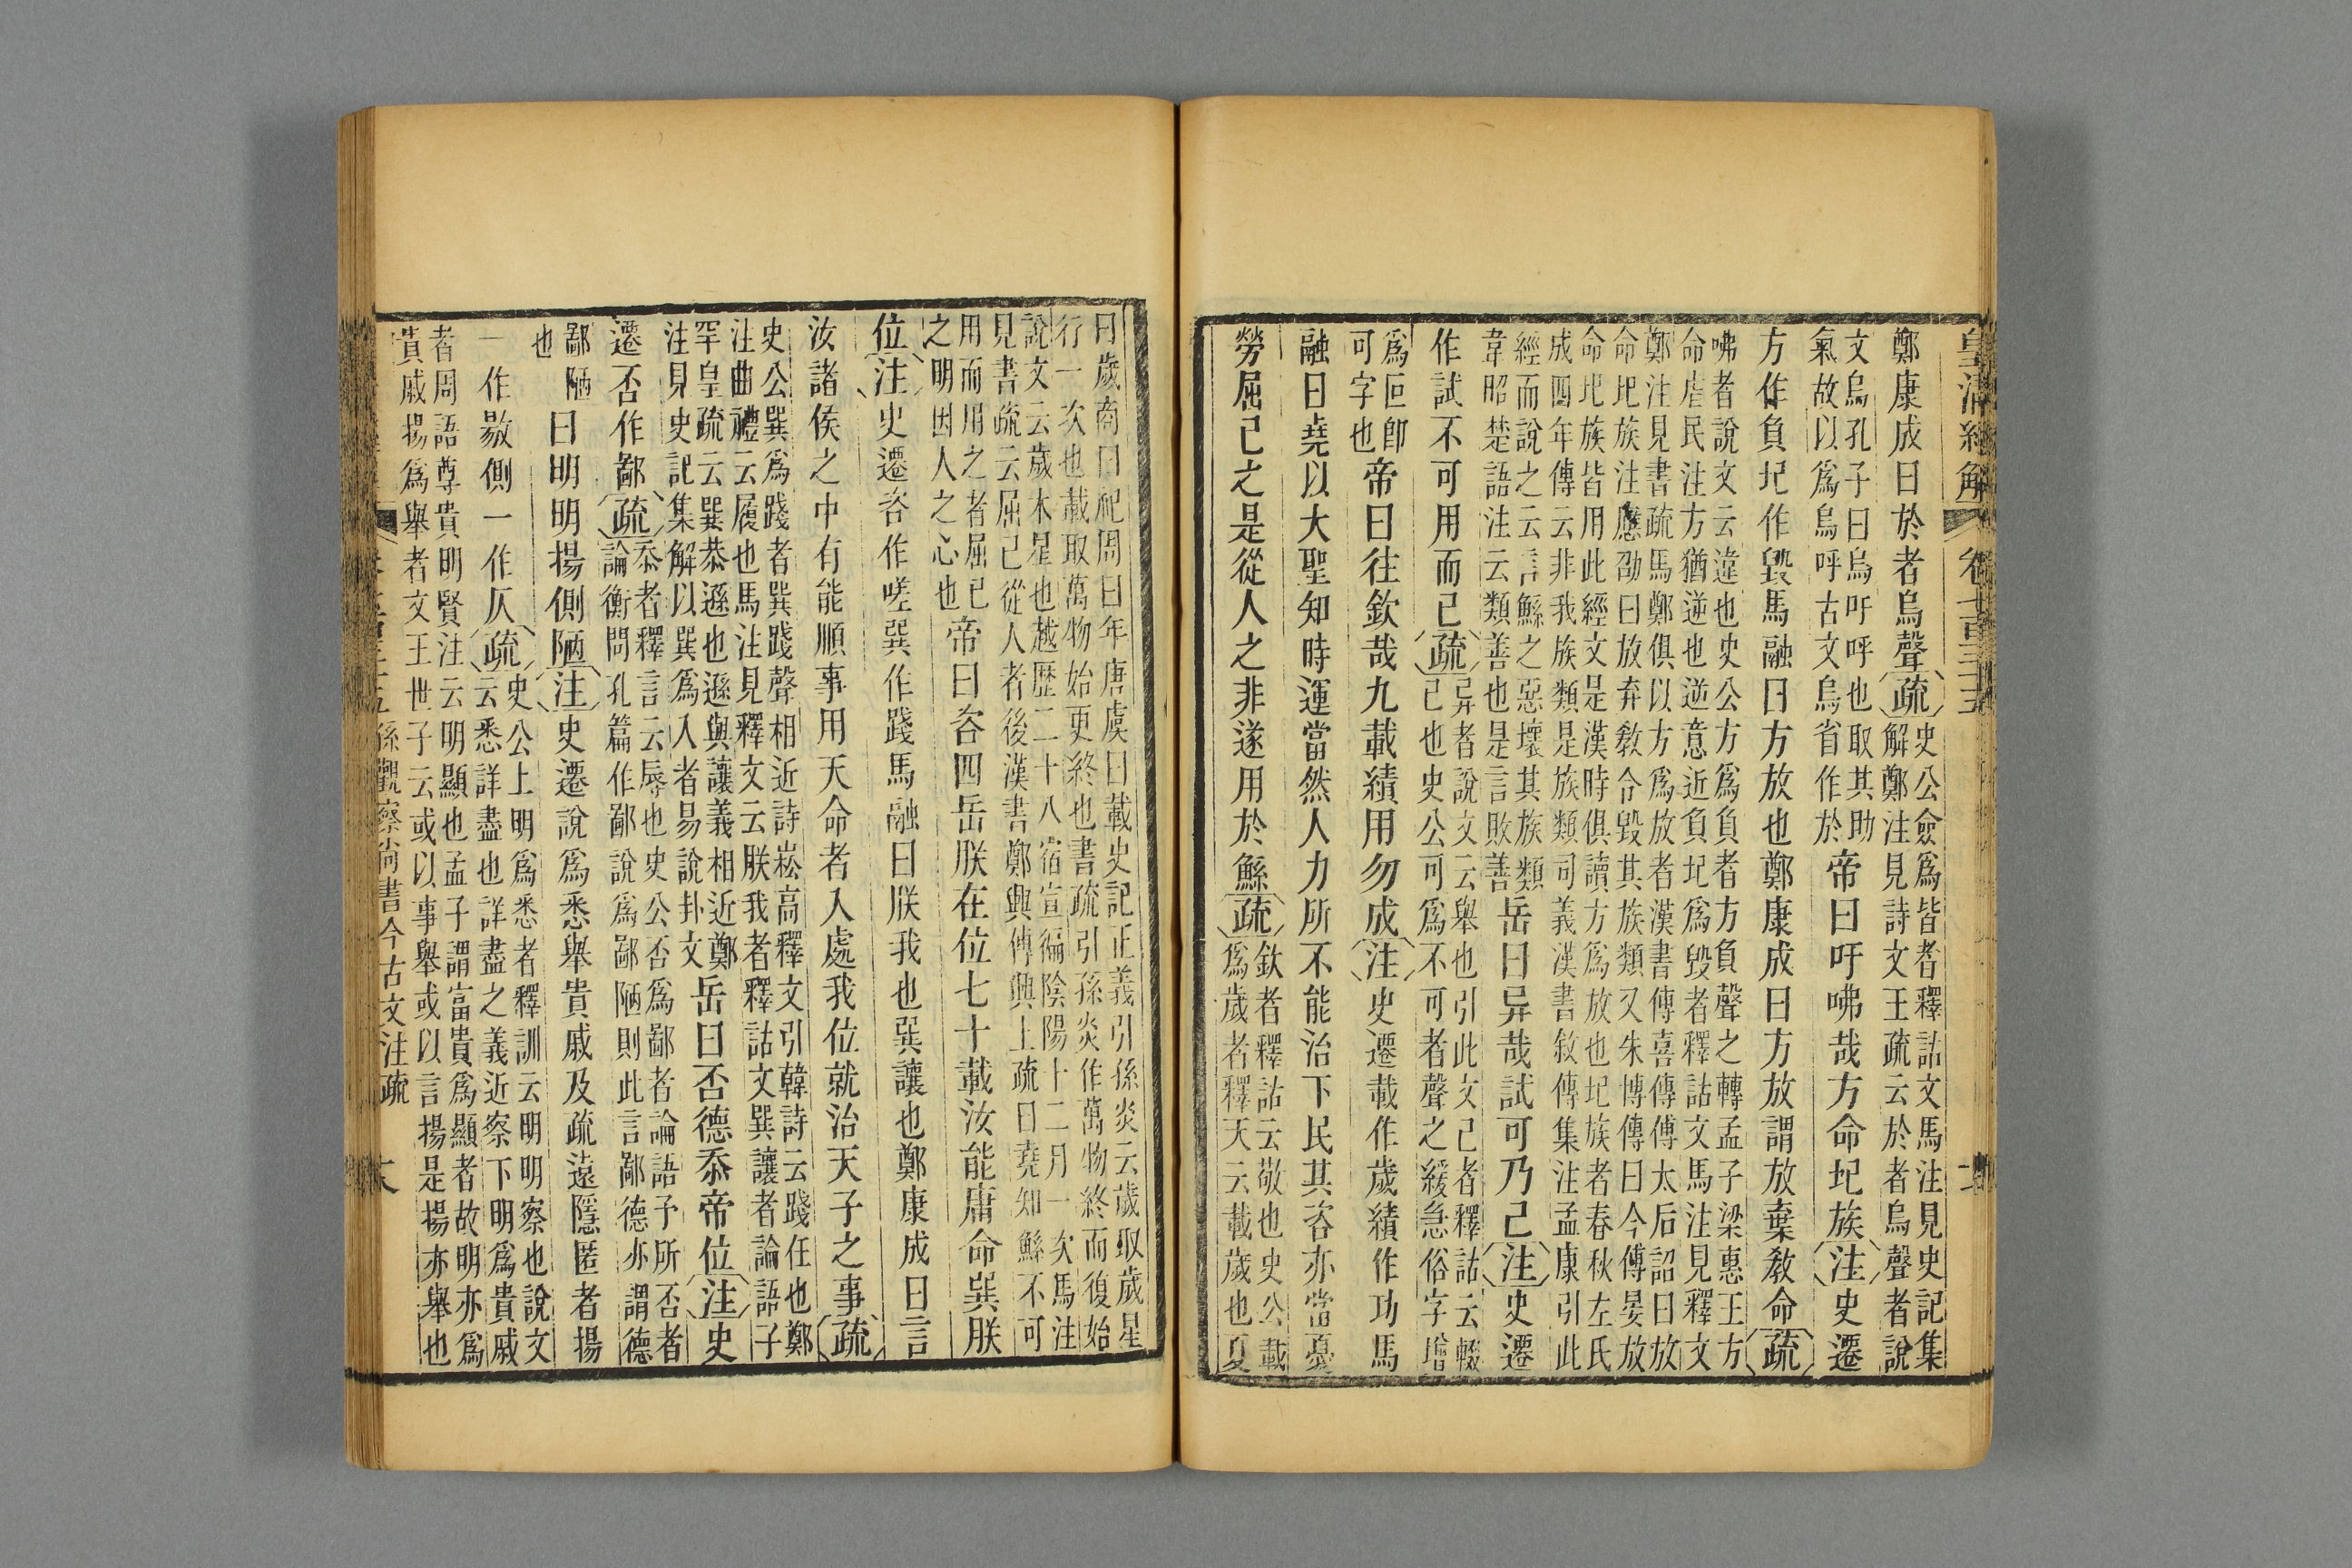 皇清經解
卷七百三十五
鄭康成曰於者烏聲疏
史公僉爲皆者釋詁文馬注見史記集
解鄭注見詩文王疏云於者烏聲者說
文烏孔子曰烏吁呼也取其助
氣故以爲烏呼古文烏省作於
帝曰吁咈哉方命圮族注史遷
方作負圮作毀馬融曰方放也鄭康成曰方放謂放棄敎命疏
咈者說文云違也史公方爲負者方負聲之轉孟子梁惠王方
命虐民注方猶逆也逆意近負圮爲毀者釋詁文馬注見釋文
鄭注見書疏馬鄭俱以方爲放者漢書傳喜傳傅太后詔曰放
命圮族注應劭曰放弃敎令毀其族類又朱博傳曰今傅晏放
命圮族皆用此經文是漢時俱讀方爲放也圮族者春秋左氏
成四年傳云非我族類是族類司義漢書敘傳集注孟康引此
經而說之云言鯀之惡壞其族類
韋昭楚語注云類善也是言敗善
岳曰异哉試可乃已注史遷
作試不可用而已疏
异者說文云舉也引此文已者釋詁云輟
已也史公可爲不可者聲之緩急俗字增
爲叵卽
可字也
帝曰往欽哉九載績用勿成注史遷載作歲績作功馬
融曰堯以大聖知時運當然人力所不能治下民其咨亦當憂
勞屈已之是從人之非遂用於鯀疏
欽者釋詁云敬也史公載
爲歲者釋天云載歲也夏
曰歲商曰祀周曰年唐虞曰載史記正義引孫炎云歲取歲星
行一次也載取萬物始更終也書疏引孫炎作萬物終而復始
說文云歲木星也越歷二十八宿宣徧陰陽十二月一次馬注
見書疏云屈己從人者後漢書鄭興傳興上疏曰堯知鯀不可
用而用之者屈已
之明因人之心也
帝曰咨四岳朕在位七十載汝能庸命巽朕
位注史遷咨作嗟巽作踐馬融曰朕我也巽讓也鄭康成曰言
汝諸侯之中有能順事用天命者入處我位就治天子之事疏
史公巽爲踐者巽踐聲相近詩崧高釋文引韓詩云踐任也鄭
注曲禮云履也馬注見釋文云朕我者釋詁文巽讓者論語子
罕皇疏云巽恭遜也遜與讓義相近鄭
注見史記集解以巽爲入者易說卦文
岳曰否德忝帝位注史
遷否作鄙疏
忝者釋言云辱也史公否爲鄙者論語予所否者
論衡問孔篇作鄙說爲鄙陋則此言鄙德亦謂德
鄙陋
也
曰明明揚側陋注史遷說爲悉舉貴戚及疏遠隱匿者揚
一作敭側一作仄疏
史公上明爲悉者釋訓云明明察也說文
云悉詳盡也詳盡之義近察下明爲貴戚
者周語尊貴明賢注云明顯也孟子謂富貴爲顯者故明亦爲
貴戚揚爲舉者文王世子云或以事舉或以言揚是揚亦舉也
孫觀察尚書今古文注疏